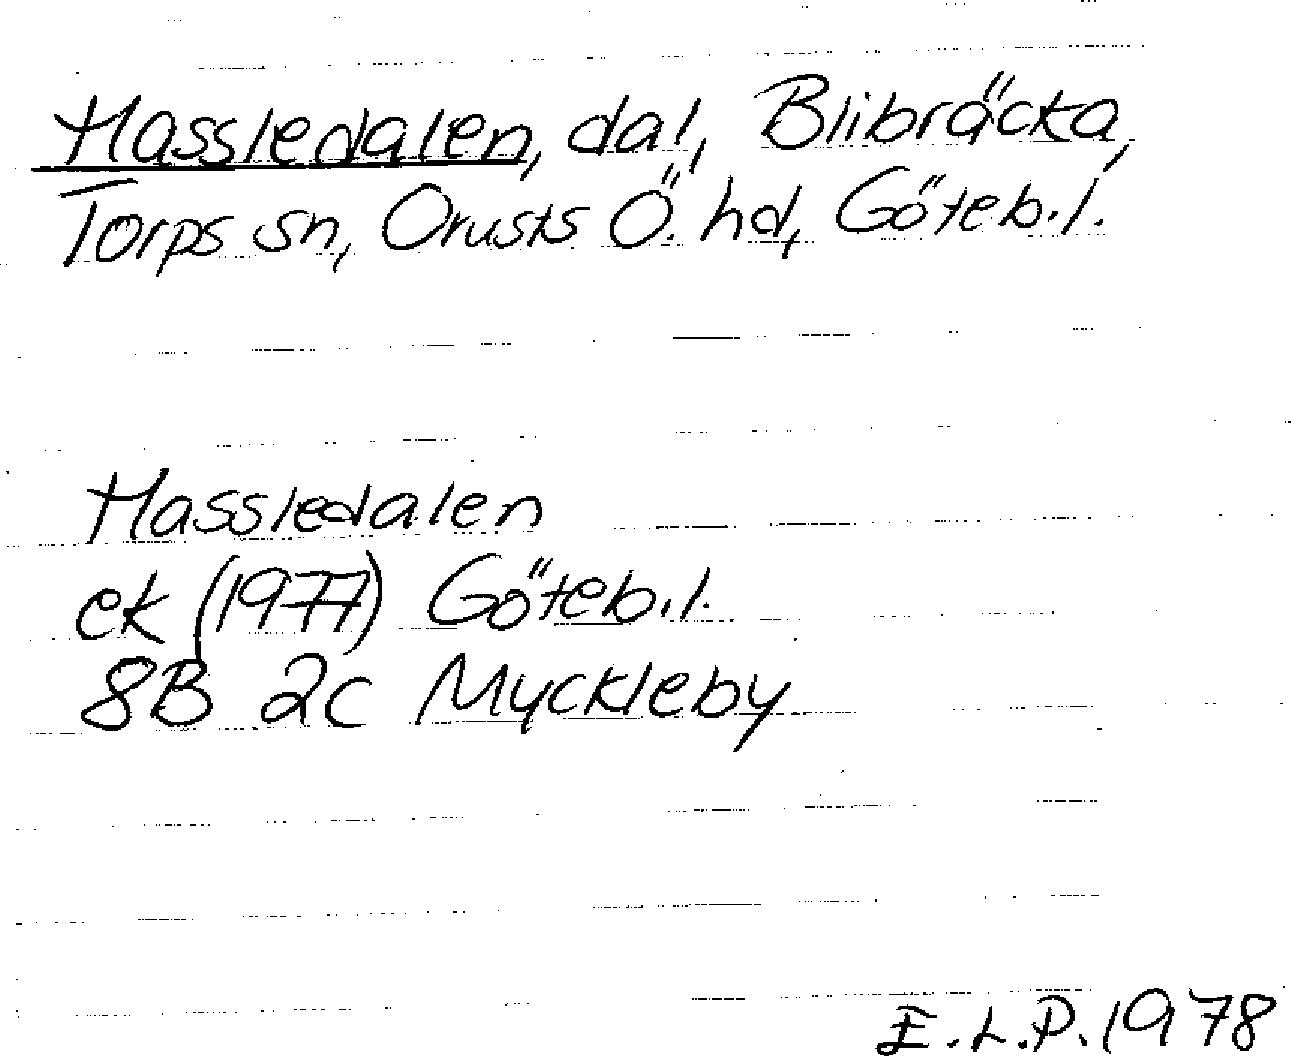 Hassledalen, dal, Blibräcka,
Torps sn, Orusts Ö. hd, Göteb.l.
Hassledalen
ek (1977) Göteb.l.
8B 2c Myckleby
E.L.P. 1978